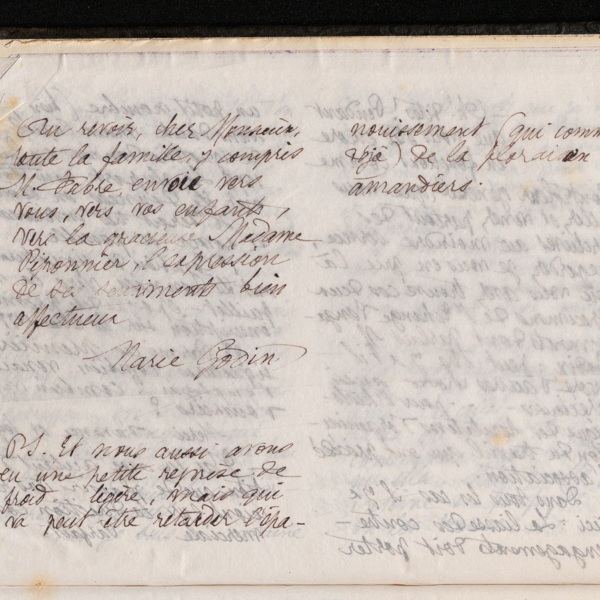 Au revoir, cher Monsieur,
toute la famille, y compris
M. Fabre, envoie vers
vous, vers vos enfants,
vers la gracieuse Madame
Piponnier, l'expression
de ses sentiments bien
affectueux
Marie Godin
P.S. Et nous aussi avons
eu une petite reprise de
froid légère, mais qui
va peut être retarder l'épa-
nouissement (qui comm
déjà) de la floraison
amandiers.